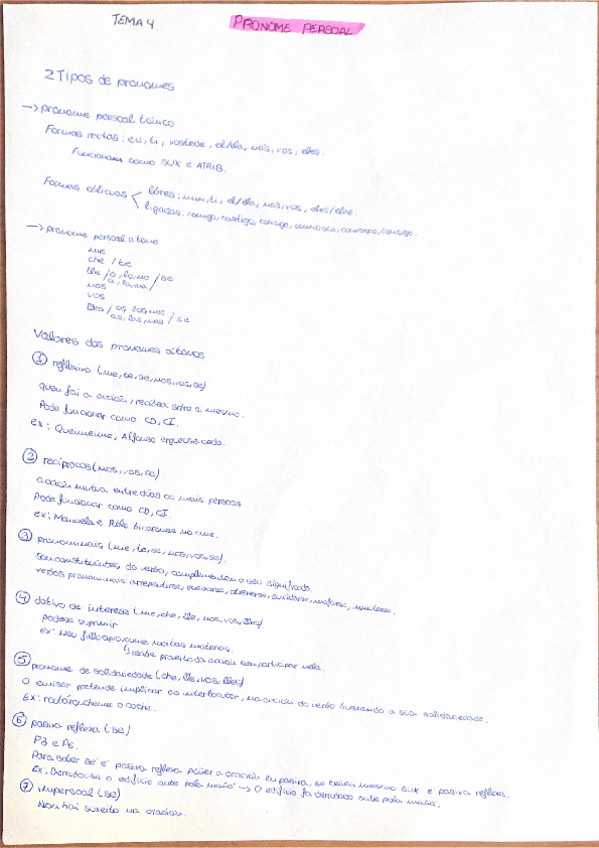 TEMA 4
PRONOME PERSOAL
2 Tipos de pronomes
→ pronome persoal tónico
Formas rectas: eu, ti, vostede, el/ela, nós, vós, eles.
Funcionan como SUX e ATRIB.
Formas oblicuas
libres: min, ti, el/ela, nós, vós, eles/elas
ligadas: comigo, contigo, consigo, connosco, convosco, consigo.
→ pronome persoal átono
me
che / te
lle / o, lo, no / se
a, la, na /
nos
vos
lles / os, los, nos / se
as, las, nas
Valores dos pronomes átonos
① reflexivo (me, te, se, nos, vos, se)
quen fai a acción, recibea sobre si mesmo.
Pode funcionar como CD, CI.
Ex: Queimeime, Alfonso ergueuse cedo.
② recíprocos (nos, vos, se)
acción mutua entre dúas ou máis persoas
Pode funcionar como CD, CI.
ex: Manuela e bicáronse no cine.
③ pronominais (me, te, se, nos, vos, se).
Son constituíntes do verbo, complementan o seu significado.
verbos pronominais arrepentirse, queixarse, absterse, suicidarse,
④ dativo de interese (me, che, lle, nos, vos, lles)
pódese suprimir
ex: Meu fillo aproboume moitas materias.
↳ recibe proveito da acción sen participar nela.
⑤ pronome de solidariedade (che, lle, vos, lles)
O emisor pretende implicar ao interlocutor, na acción do verbo buscando a súa solidariedade.
Ex: roubáronche o coche.
⑥ pasiva reflexa (se)
P3 e P6.
Para saber se é pasiva reflexa poñer a oración en pasiva, se teñen mesmo SUX é pasiva reflexa.
Ex: Derrubouse o edificio onte pola mañá → O edificio foi derrubado onte pola mañá.
⑦ impersoal (se)
Non hai suxeito na oración.